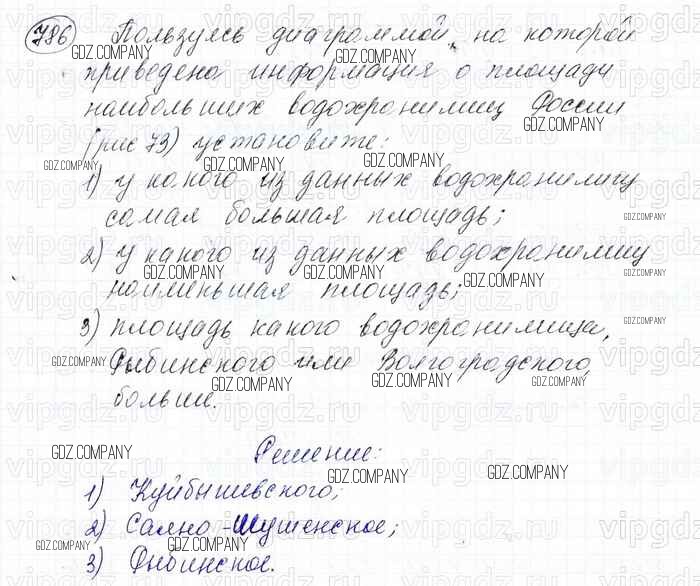 786 Пользуясь диаграммой, на которой
приведена информация о площади
наибольших водохранилищ России
(рис 73) установите:
1) у какого из данных водохранилищ
самая большая площадь;
2) у какого из данных водохранилищ
наименьшая площадь;
3) площадь какого водохранилища,
Рыбинского или Волгоградского,
больше.
Решение:
1) Куйбышевского;
2) Саяно-Шушенское;
3) Рыбинское.